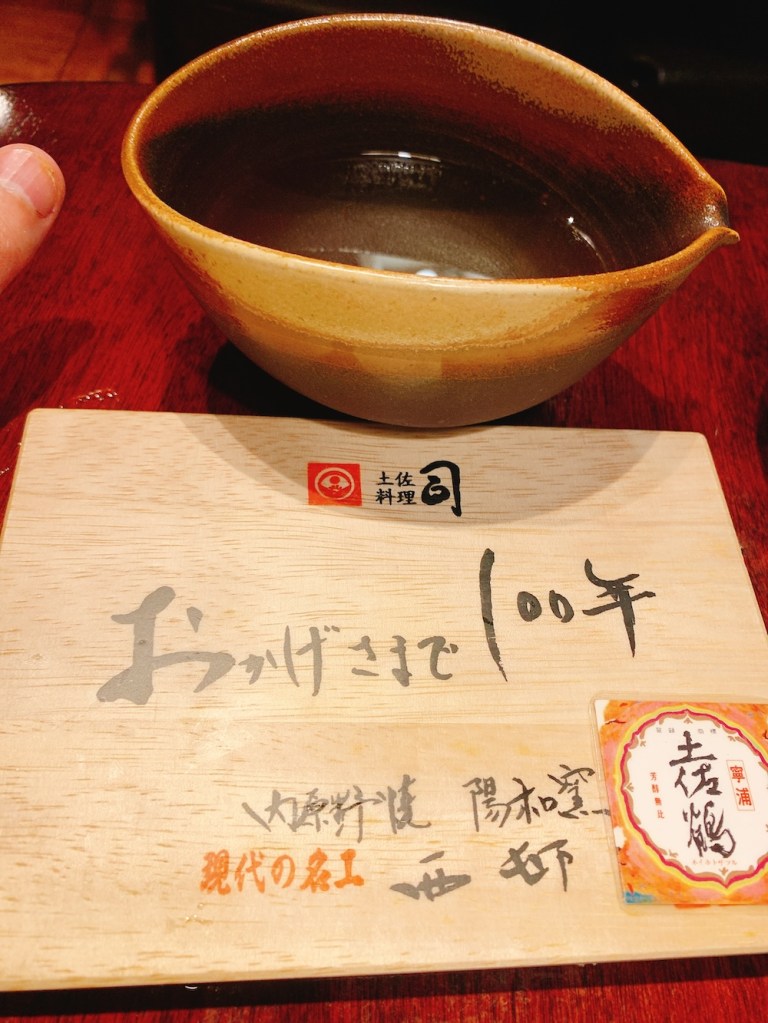 土佐
料理 司
おかげさまで100年
内原野焼 陽和窯
現代の名工 西邨
土佐鶴
寧浦